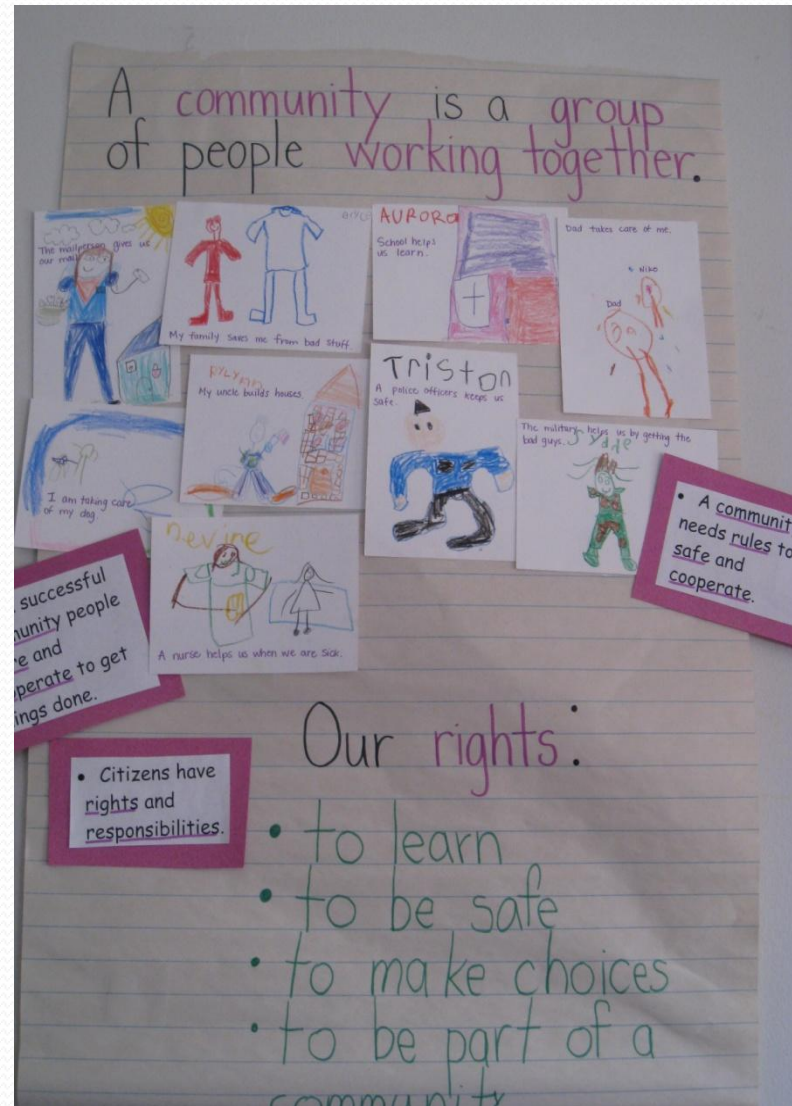 A community is a group
of people working together.
The mailperson gives us
our mail.
My family saves me from bad stuff.
AURORA
School helps
us learn.
Dad takes care of me.
Niko
Dad
I am taking care
of my dog.
RYLYNN
My uncle builds houses.
Triston
A police officers keeps us
safe.
The military helps us by getting the
bad guys.
nevine
A nurse helps us when we are sick.
• A communit
needs rules to
safe and
cooperate.
successful
unity people
e and
perate to get
ings done.
• Citizens have
rights and
responsibilities.
Our rights:
• to learn
• to be safe
• to make choices
• to be part of a
community